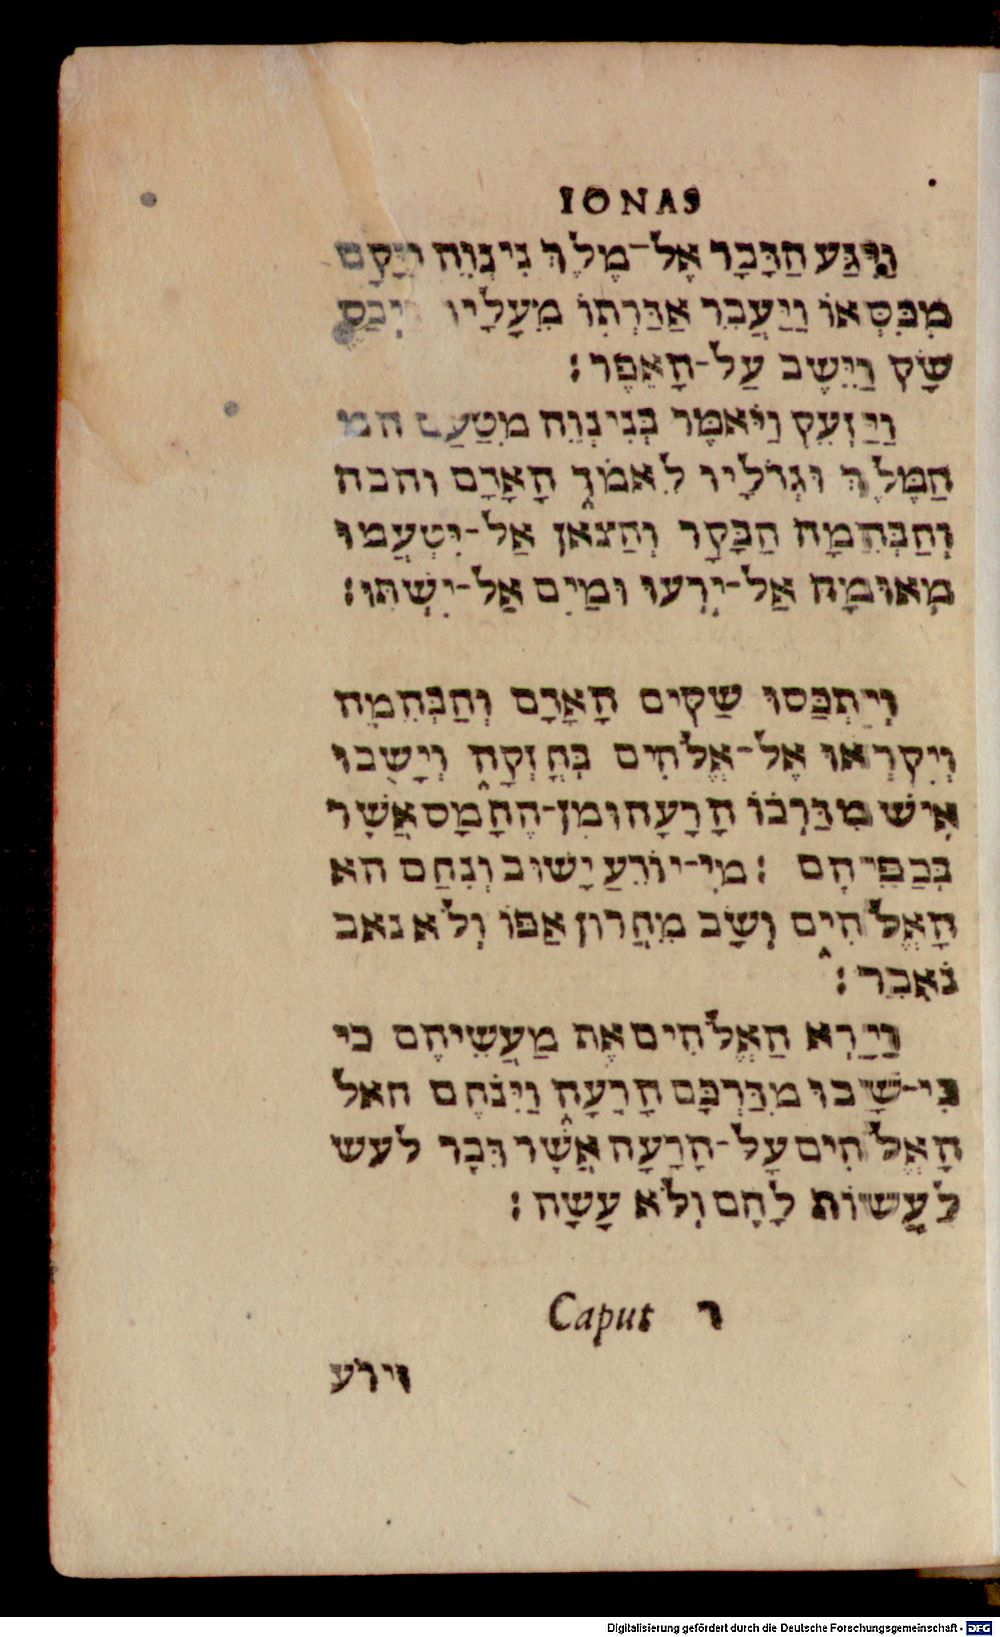 IONAS
וַיִּגַּע הַדָּבָר אֶל־מֶלֶךְ נִינְוֵה וַיָּקָם
מִכִּסְּאוֹ וַיַּעֲבֵר אַדַּרְתּוֹ מֵעָלָיו וַיְכַס
שַׂק וַיֵּשֶׁב עַל־הָאֵפֶר׃
וַיַּזְעֵק וַיֹּאמֶר בְּנִינְוֵה מִטַּעַם המ
הַמֶּלֶךְ וּגְדֹלָיו לֵאמֹר הָאָדָם והבה
וְהַבְּהֵמָה הַבָּקָר וְהַצֹּאן אַל־יִטְעֲמוּ
מְאוּמָה אַל־יִרְעוּ וּמַיִם אַל־יִשְׁתּוּ׃
וְיִתְכַּסּוּ שַׂקִּים הָאָדָם וְהַבְּהֵמָה
וְיִקְרְאוּ אֶל־אֱלֹהִים בְּחָזְקָה וְיָשֻׁבוּ
אִישׁ מִדַּרְכּוֹ הָרָעָה וּמִן־הֶחָמָס אֲשֶׁר
בְּכַפֵּיהֶם׃ מִי־יוֹדֵעַ יָשׁוּב וְנִחַם הא
הָאֱלֹהִים וְשָׁב מֵחֲרוֹן אַפּוֹ וְלֹא נאב
נֹאבֵד׃
וַיַּרְא הָאֱלֹהִים אֶת מַעֲשֵׂיהֶם כי
כִּי־שָׁבוּ מִדַּרְכָּם הָרָעָה וַיִּנֹּחֶם האל
הָאֱלֹהִים עַל־הָרָעָה אֲשֶׁר דִּבֶּר לעש
לַעֲשׂוֹת לָהֶם וְלֹא עָשָׂה׃
Caput ד
וירע
Digitalisierung gefördert durch die Deutsche Forschungsgemeinschaft - DFG